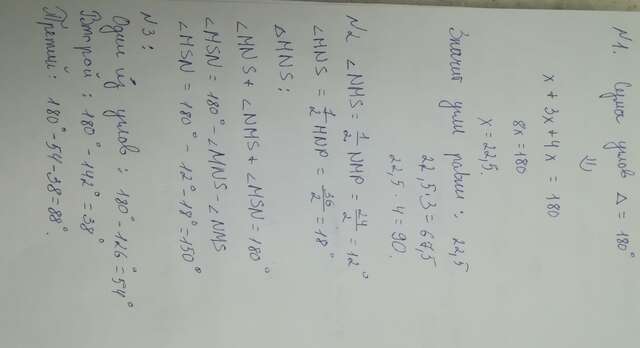 N1. Сума углов Δ = 180°
⇓
x + 3x + 4x = 180
8x = 180
x = 22,5.
Значит углы равны: 22,5
22,5·3 = 67,5
22,5·4 = 90.
N2 ∠NMS = 1/2 NMP = 24/2 = 12°
∠MNS = 1/2 MNP = 36/2 = 18°
ΔMNS:
∠MNS + ∠NMS + ∠MSN = 180°
∠MSN = 180° - ∠MNS - ∠NMS
∠MSN = 180° - 12° - 18° = 150°
N3:
Один из углов: 180° - 126° = 54°
Второй: 180° - 142° = 38°
Третий: 180° - 54 - 38 = 88°.